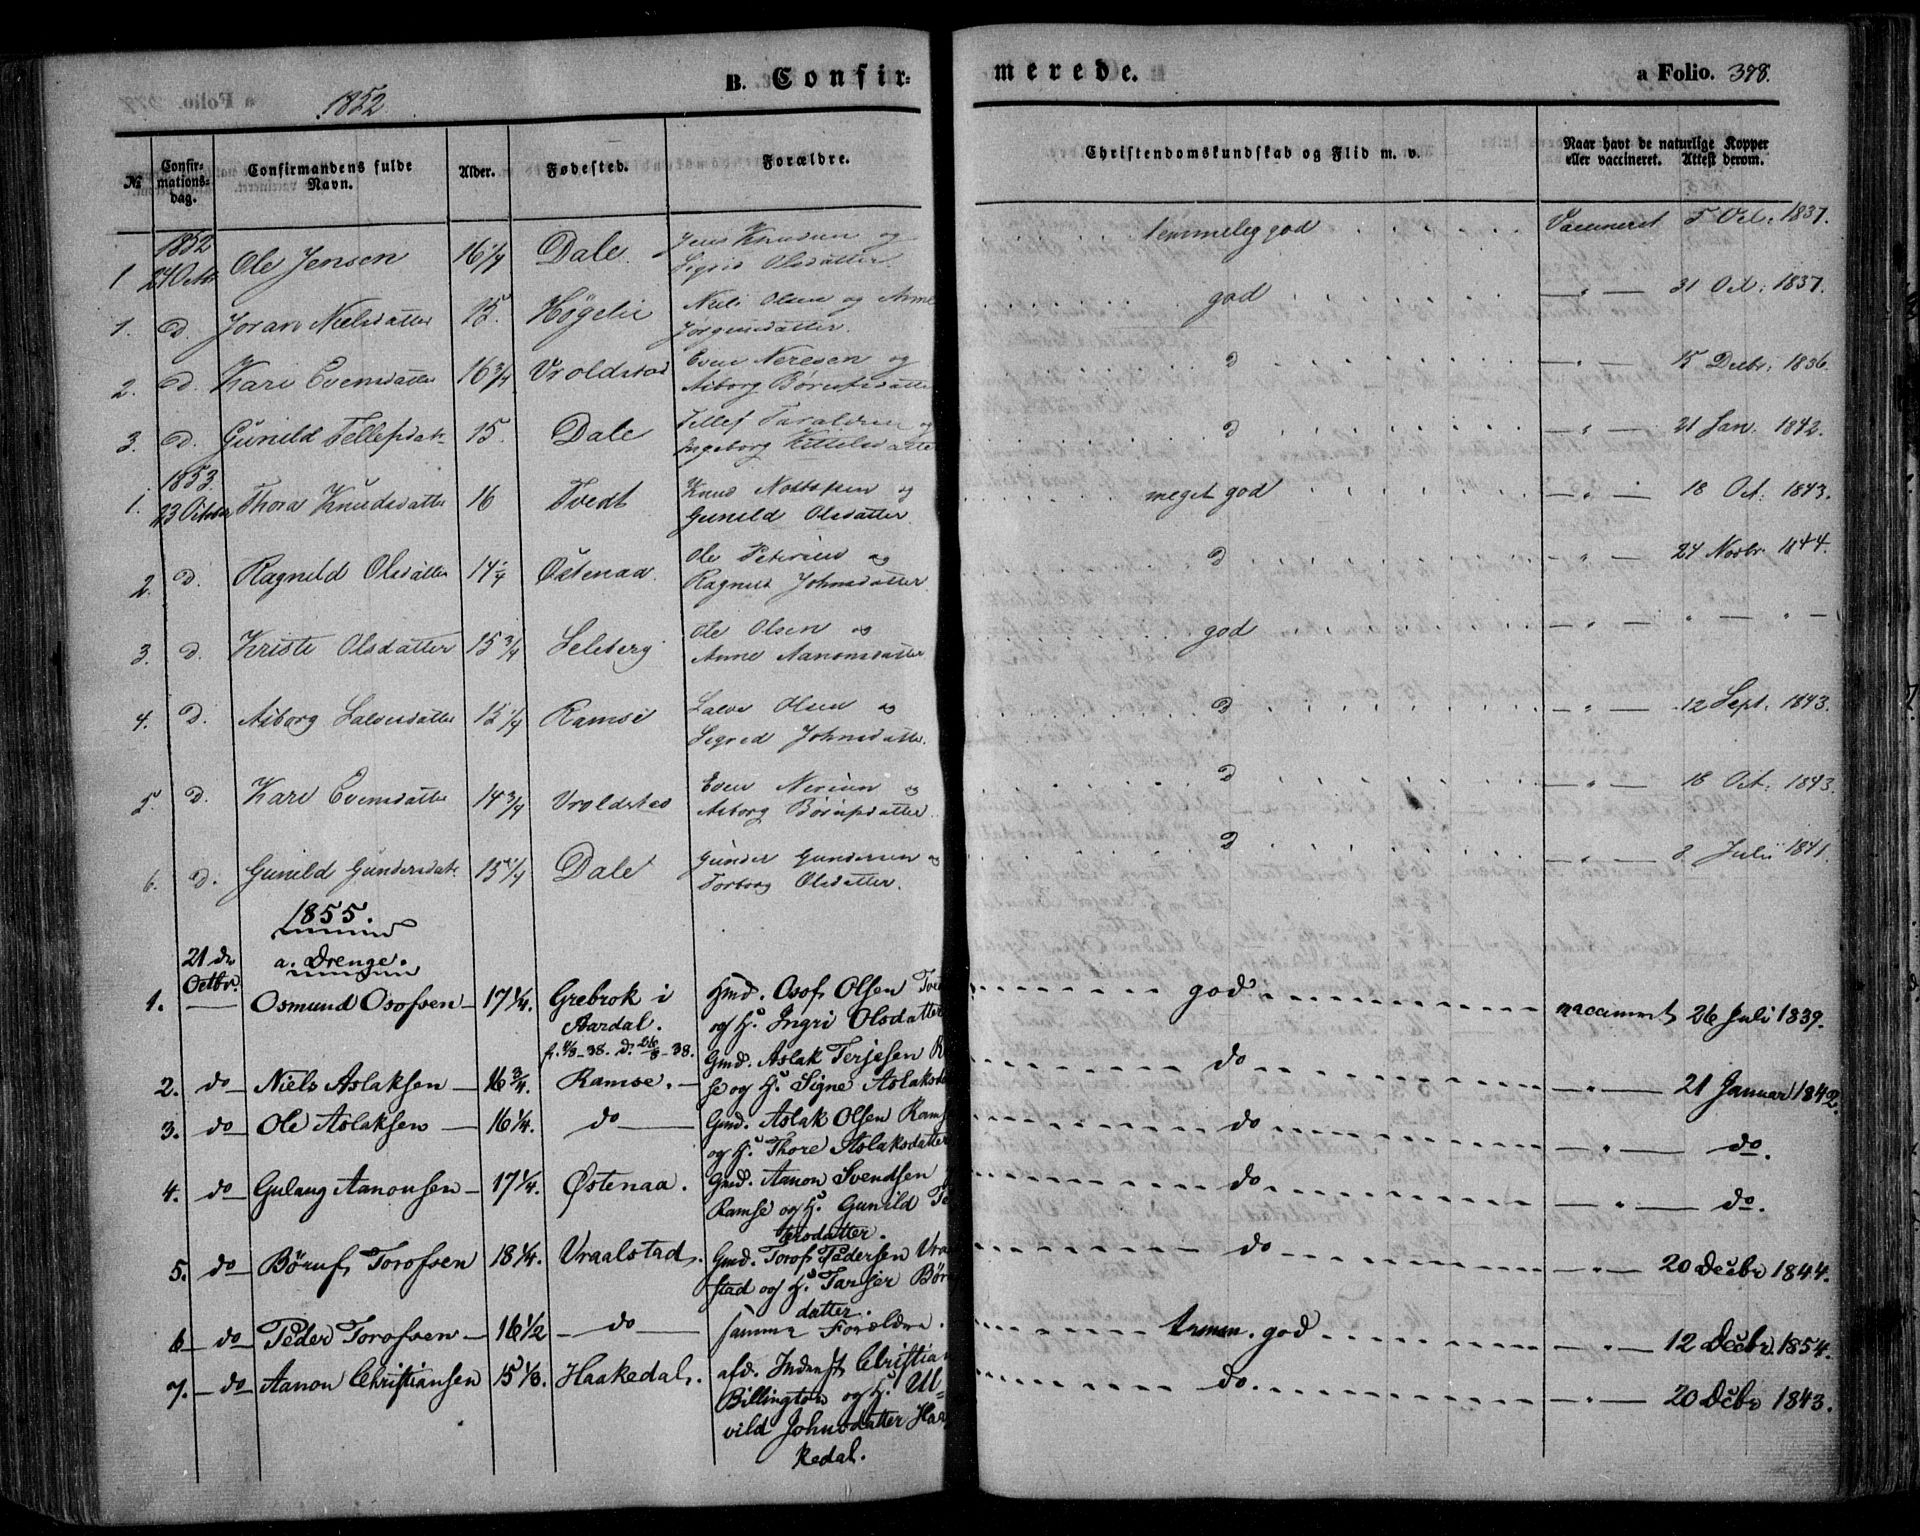 1852
B. Confirmerede. a Folio. 398.
№ Confirmationsdag. Confirmandens fulde Navn. Alder. Fødested. Forældre. Christendomskundskab og Flid m. v. Naar havt de naturlige Kopper eller vaccineret. Attest derom.
1 1852 24 Octbr Ole Jensen 16 1/4 Dale. Jens Knudsen og Sigrid Olsdatter. temmelig god Vaccineret 5 1837.
1. D. Joran Nielsdatter 15. Høgelie Niels Olsen og Anne Jorgensdatter. god — " — 31 Oct: 1837.
2. D. Kari Evensdatter 16 3/4 Vroldstad Even Neresen og Asborg Børufsdatter D — " — 15 Decbr: 1836.
3. D. Gunild Tellefsdat. 15. Dale Tellef Taraldsen og Ingeborg Kittelsdatter D — " — 21 Jan: 1842.
1. 1853. 23 October Thora Knudsdatter 16 Tvedt Knud og Gunild Olsdatter. meget god — " — 18 Oct: 1843.
2. D. Ragnild Olsdatter 14 1/4 Østenaa. Ole Petersen og Ragnild Johnsdatter D " — 24 Novbr. 1844.
3. D. Kriste Olsdatter 15 3/4 Selsberg Ole Olsen og Anne Aanonsdatter god — " — " — " —
4. D. Asborg Salvesdatter 15 1/4 Ramse Salve Olsen og Sigrid Johnsdatter. D — " — 12 Sept: 1843.
5 D. Kari Evensdatter 14 3/4 Vroldstad Even Nersen og Asborg Børufsdatter. D — " — 18 Oct: 1843.
6. D. Gunild Gundersdat. 15 1/4 Dale Gunder Gundersen og Torborg Olsdatter. D — " — 8 Julii 1841.
1855.
a. Drenge.
1. 21 de Octbr. Osmund Osofsen 17 1/4. Grebrok i Aardal. f. 4/3-38. D. 26/8-38. Gmd. Osof Olsen Tvet og H. Ingri Olsdatter god vaccineret 26 Juli 1839.
2. do Niels Aslaksen 16 3/4. Ramse. Gmd. Aslak Terjesen Ramse og H. Signe Aslaksda do — " — 21 Januar 1842.
3. do Ole Aslaksen 16 1/4. do Gmd. Aslak Olsen Ramse og H. Thore Aslaksdatter do " — do.
4. do Gulaug Aanonsen 17 1/4. Østenaa. Gmd. Aanon Svendsen Ramse og H. Gunild Te ersdatter. do " — do.
5. do Børuf Torofsen 18 1/4. Vraalstad. Gmd. Torof Pedersen Vra stad og H. Tarjer Bør datter. do — " — 20 Decbr 1844.
6 do Peder Torofsen 16 1/2 do samme Forældre. temmen. god — " — 12 Decbr 1854.
7. do Aanon Christiansen 15 1/3. Haakedal. afd. Inderst Christian Billington og H. Ul= vild Johnsdatter Haa kedal. do. — " — 20 Decbr 1843.